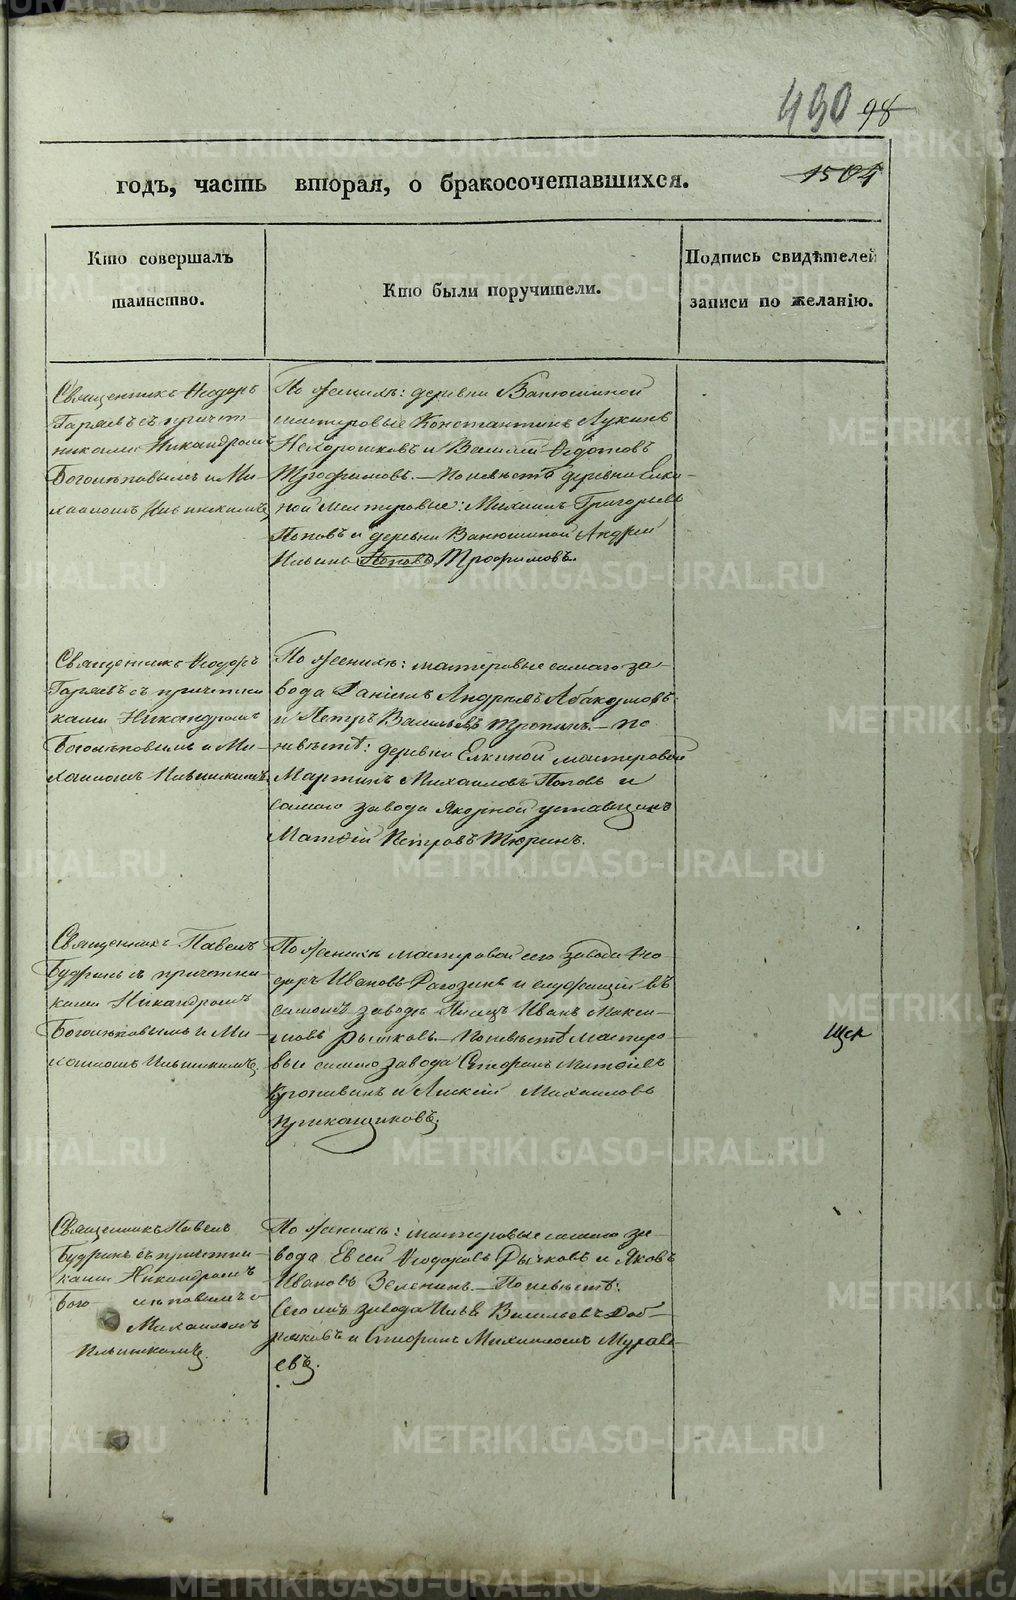 490 98
годъ, часть вторая, о бракосочетавшихся.
1504
Кто совершалъ
таинство.
Кто были поручители.
Подпись свидѣтелей
записи по желанію.
Священникъ Ѳеодоръ
Гаряевъ съ причет-
никами Никандромъ
Боголѣповымъ и Ми-
хаиломъ Ильинскимъ
По женихѣ: деревни Ванюшиной
мастеровые Константинъ Лукинъ
Нехорошковъ и Василій Ѳедотовъ
Трофимовъ. — По невѣстѣ деревни Елки-
ной мастеровые: Михаилъ Григорьевъ
Поповъ и деревни Ванюшиной Андрей
Ильинъ Поповъ Трофимовъ.
Священникъ Ѳеодоръ
Гаряевъ съ причетни
ками Никандромъ
Боголѣповымъ и Ми-
хаиломъ Ильинскимъ
По женихѣ: мастеровые самаго за-
вода Даніилъ Андреевъ Абакумовъ
и Петръ Васильевъ Тропинъ. — По
невѣстѣ: деревни Елкиной мастеровой
Мартинъ Михаиловъ Поповъ и
самаго завода Якорной уставщикъ
Матѳій Петровъ Тюринъ.
Священникъ Павелъ
Будринъ съ причетни-
ками Никандромъ
Боголѣповымъ и Ми-
хаиломъ Ильинскимъ
По женихѣ мастеровой сего завода Ѳео-
доръ Ивановъ Рагозинъ и служащій въ
самомъ заводѣ Писецъ Иванъ Макси-
мовъ Рычковъ. — По невѣстѣ мастеро-
вые самаго завода Стефанъ Матѳіевъ
Кропивинъ и Алексій Михаиловъ
Приказщиковъ.
Щек
Священникъ Павелъ
Будринъ съ причетни-
ками Никандромъ
Бого лѣповымъ и
Михаиломъ
Ильинскимъ
По женихѣ: мастеровые самаго за-
вода Евсей Ѳеодоровъ Рычковъ и Яковъ
Ивановъ Зеленинъ. — По невѣстѣ:
Сего жъ завода Илья Васильевъ Доб-
ряковъ и Стефанъ Михаиловъ Муравь-
евъ.
METRIKI.GASO-URAL.RU